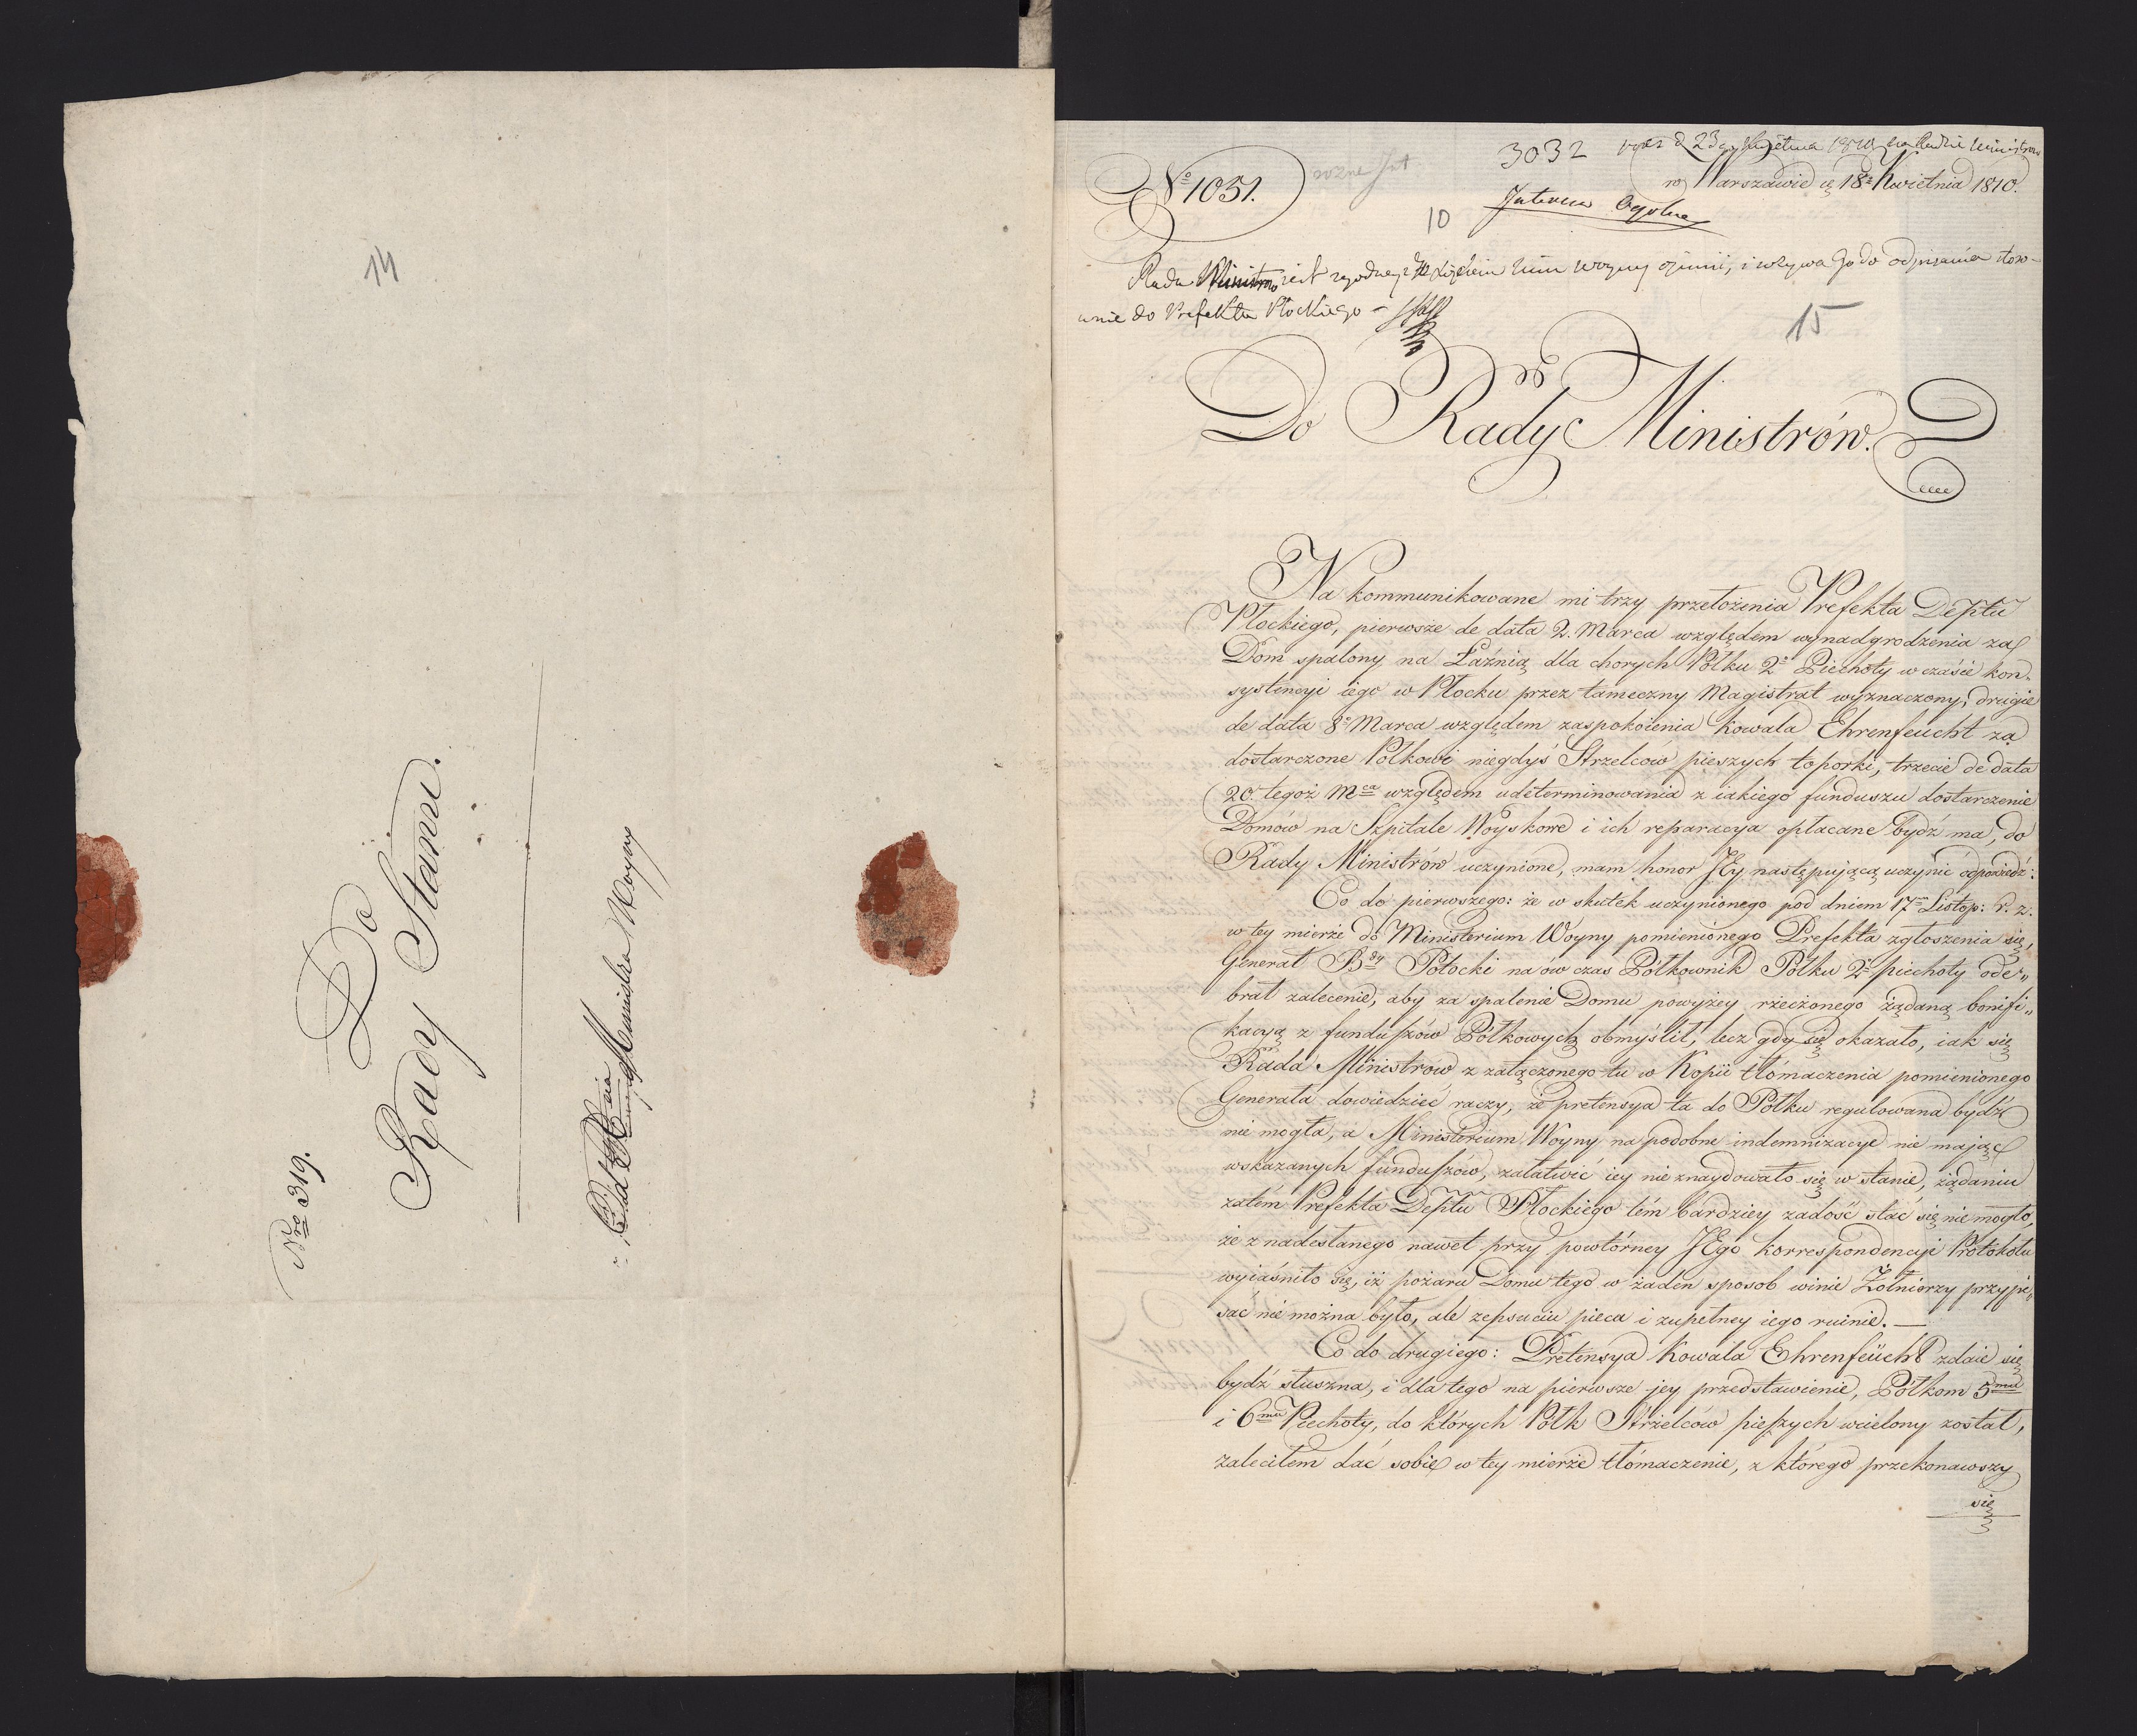 14
Nro 319.
Do
Rady Stanu.
Ministra Woyny
3032 1810 na Radzie Ministrów
No 1051.
różne
w Warszawie d. 18 Kwietnia 1810.
10
Interesa Ogólne
Rada Ministrów jest do odpisania stoso-
wnie do Prefekta Płockiego -
15
Do Rady Ministrów.
Na kommunikowane mi trzy przełożenia Prefekta Deptu
Płockiego, pierwsze de data 2. Marca względem wynadgrodzenia za
Dom spalony na Łaźnią dla chorych Pólku 2o Piechoty w czasie kon-
systencyi iego w Płocku przez tameczny Magistrat wyznaczony, drugie
de data 8o Marca względem zaspokoienia Kowala Ehrenfeucht za
dostarczone Pólkowi niegdyś Strzelców pieszych toporki, trzecie de data
20. tegoż Mca względem udeterminowania z iakiego funduszu dostarczenie
Domów na Szpitale Woyskowe i ich reparacya opłacane bydź ma, do
Rady Ministrów uczynione, mam honor JEy następującą uczynić odpowiedź:
Co do pierwszego: że w skutek uczynionego pod dniem 17m Listop: r. z.
w tey mierze do Ministerium Woyny pomienionego Prefekta zgłoszenia się,
Generał Bdy Potocki na ów czas Półkownik Pólku 2o piechoty ode„
brał zalecenie, aby za spalenie Domu powyżey rzeczonego żądaną bonifi„
kacyą z funduszów Pólkowych obmyślił, lecz gdy się okazało, iak się
Rada Ministrów z załączonego tu w Kopii tłómaczenia pomienionego
Generała dowiedzieć raczy, że pretensya ta do Pólku regulowana bydź
nie mogła, a Ministerium Woyny na podobne indemnizacye nie mając
wskazanych funduszów, załatwić iey nie znaydowało się w stanie, żądaniu
zatém Prefekta Deptu Płockiego tém bardziey zadość stać się nie mogło,
że z nadesłanego nawet przy powtórney JEgo korrespondencyi Protokółu
wyiaśniło się, iż pożaru Domu tego w żaden sposob winie Żołnierzy przypi„
sać nie można było, ale zepsuciu pieca i zupełney iego ruinie. —
Co do drugiego: Pretensya Kowala Ehrenfeücht zdaie się
bydź słuszna, i dla tego na pierwsze jey przedstawienie, Pólkom 5mu
i 6mu Piechoty, do których Pólk Strzelców pieszych wcielony został,
zaleciłem dać sobie w tey mierze tłómaczenie, z którego przekonawszy
się